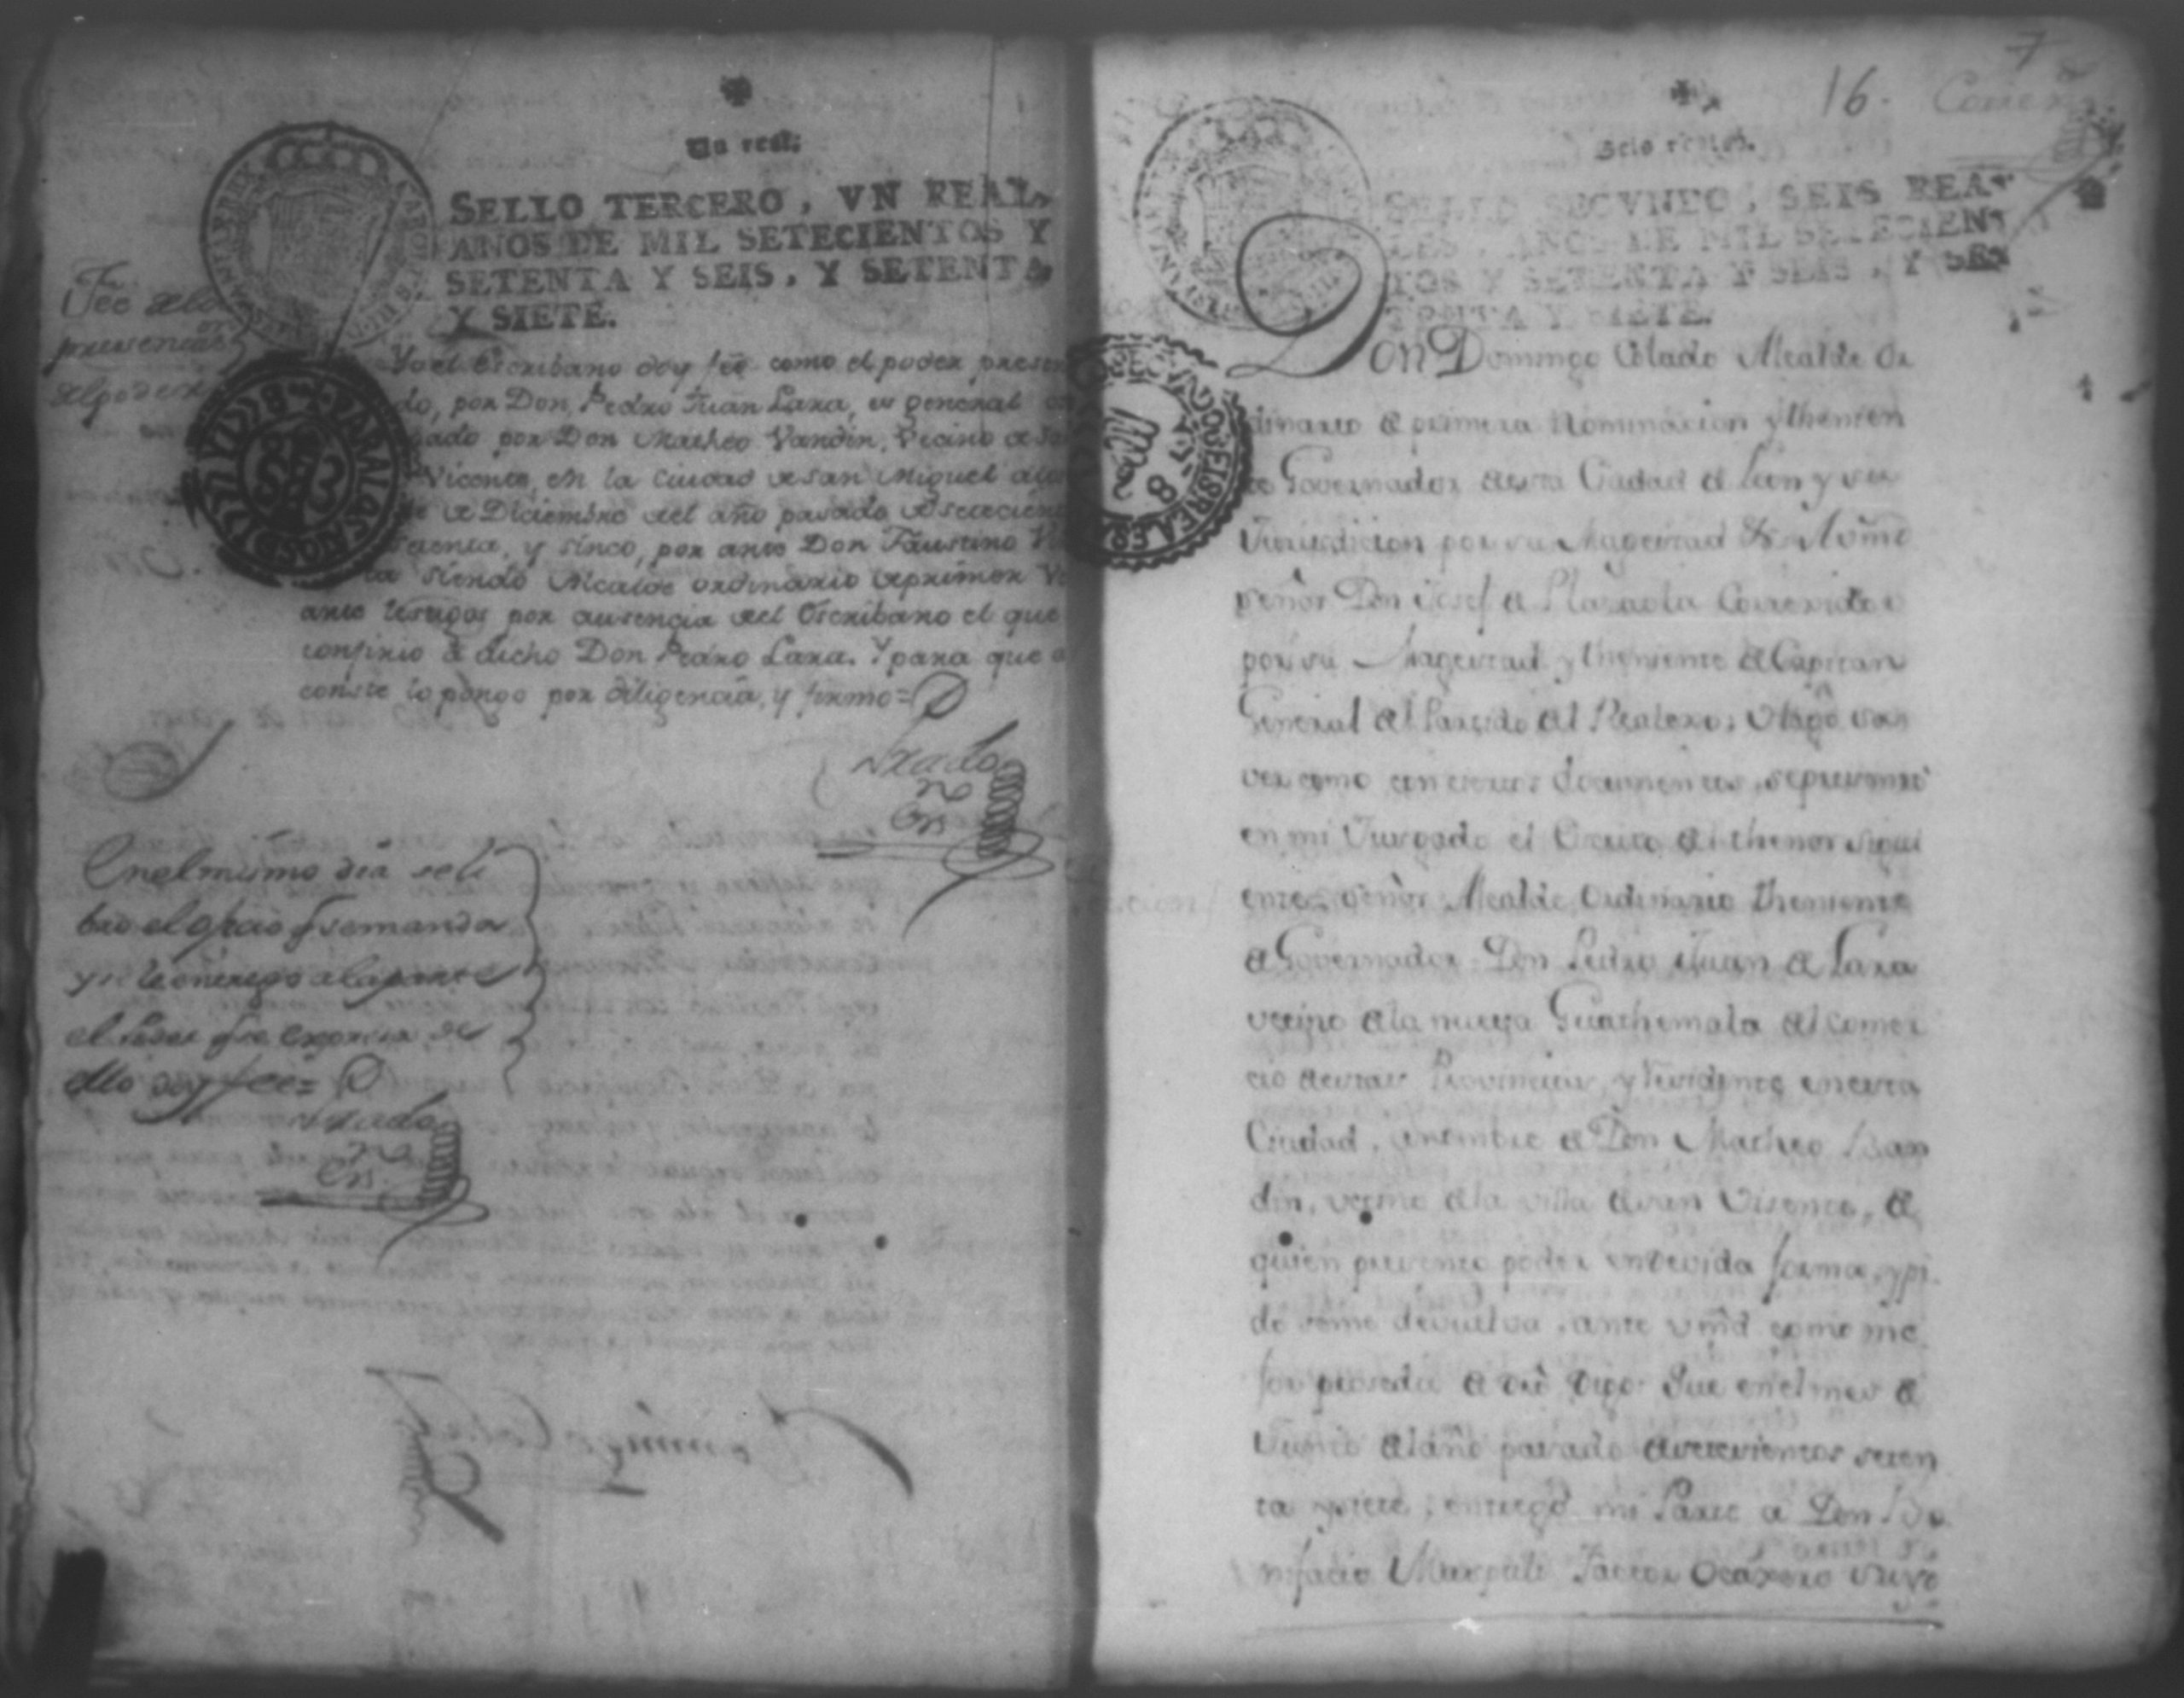 Un real.
SELLO TERCERO, VN REAL,
AÑOS DE MIL SETECIENTOS Y
SETENTA Y SEIS, Y SETENTA
Y SIETE.
Fee de la
presencia
del poder
Yo el Escribano doy fee como el poder presen
do, por Don Pedro Juan Lara, es general
gado por Don Matheo Vandin, Vecino de Sa
Vicente, en la Ciudad de San Miguel
de Diciembre del año pasado de setecien
setenta, y sinco, por ante Don Faustino
siendo Alcalde ordinario de primer Vo
ante testigos por ausencia del Escribano el que
confirio a dicho Don Pedro Lara. Y para que
conste lo pongo por diligencia, y firmo=
En el mismo dia se li
bro el q se manda
y se le entrego a la parte
el Poder
ello doy fee=
16.
7
Seis reales.
SELLO SEGVNDO, SEIS REA
LES, AÑOS DE MIL SETECIEN
TOS Y SETENTA Y SEIS, Y SE
TENTA Y SIETE.
Don Domingo Colado Alcalde Or
dinario de primera Nominacion y thenien
te Governador desta Ciudad de Leon y su
Jurisdicion por su Magestad &a. Al
señor Don Josef de Plazaola Correxidor
por su Magestad y theniente de Capitan
General del Partido del Realexo; Hago sa
ver como con ciertos documentos, se presentó
en mi Jusgado el Escrito del thenor sigui
ente= Señor Alcalde Ordinario theniente
de Governador= Don Pedro Juan de Lara
vecino de la nueva Guathemala del comer
cio destas Provincias, y residente en esta
Ciudad, a nombre de Don Matheo Ban
din, vecino de la villa de San Visente, de
quien presento poder en devida forma, y pi
do se me devuelva, ante vmd como me
jor proseda de dro digo: Que en el mes de
Junio del año pasado de setesientos seten
ta y siete, entregó mi Parte a Don Bo
nifacio Marpuli Factor